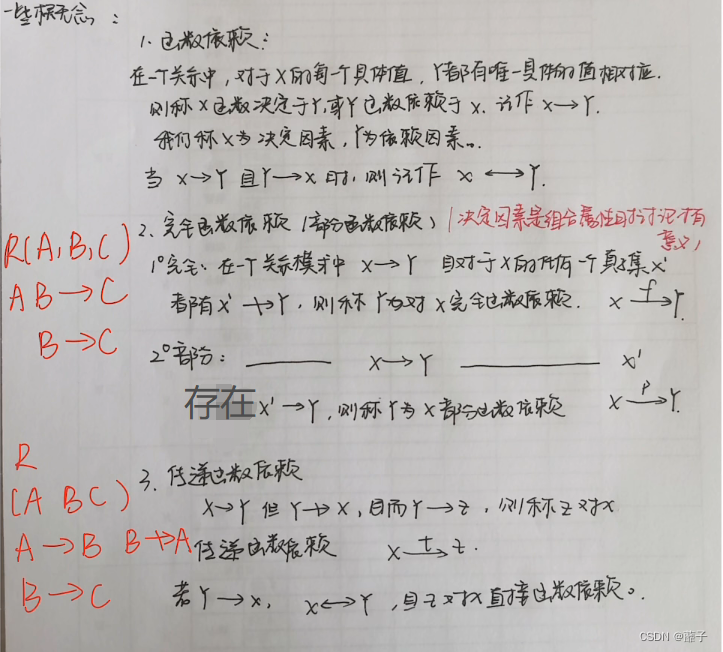 一些概念：
1. 函数依赖：
在一个关系中，对于X的每一个具体值，Y都有唯一具体的值相对应.
则称X函数决定于Y，或Y函数依赖于X. 记作 X→Y.
我们称X为决定因素，Y为依赖因素。
当 X→Y 且Y→X 时，则记作 X ↔ Y.
2. 完全函数依赖（部分函数依赖）（决定因素是组合属性时讨论才有
意义）
R(A,B,C)
AB→C
B→C
1°完全：在一个关系模式中 X→Y 且对于X的所有一个真子集X'
都有X'↛Y，则称Y为对X完全函数依赖. X -f→ Y.
2°部分： ——— X→Y ——— X'
存在X'→Y，则称Y为X部分函数依赖 X -P→ Y.
R
(A B C)
A→B B↛A
B→C
3. 传递函数依赖
X→Y 但 Y↛X，且而Y→Z，则称Z对X
传递函数依赖 X -t→ Z.
若Y→X， X↔Y，且Z对X直接函数依赖。
CSDN @藤子